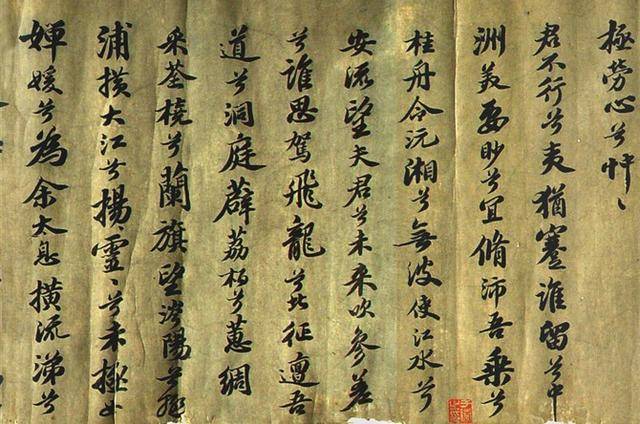 極勞心兮忡〻
君不行兮夷猶蹇誰留兮中
洲美要眇兮宜脩沛吾乘兮
桂舟令沅湘兮無波使江水兮
安流望夫君兮未來吹參差
兮誰思駕飛龍兮北征邅吾
道兮洞庭薜荔柏兮蕙綢
采荃橈兮蘭旗望涔陽兮極
浦橫大江兮揚靈〻兮未極女
嬋媛兮為余太息橫流涕兮